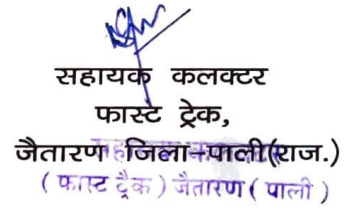 सहायक कलक्टर
फास्ट ट्रेक,
जैतारण जिला-पाली(राज.)
( फास्ट ट्रैक ) जैतारण ( पाली )